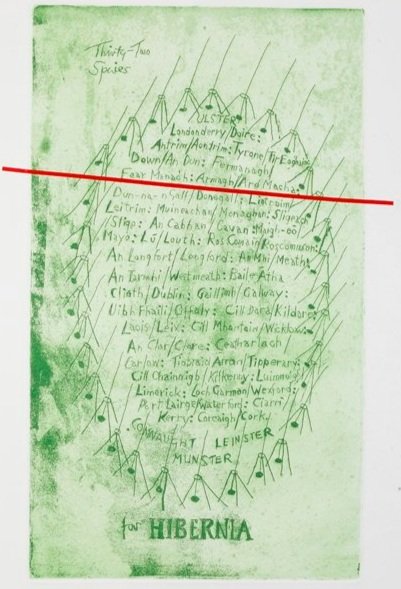 Thirty-Two
Spires
ULSTER
Londonderry/Doire:
Antrim/Aontrim: Tyrone/Tir Eoghain:
Down/An Dun: Fermanagh/
Fear Manach: Armagh/Ard Macha:
Dun-na-nGall/Donegall: Liatroim/
Leitrim: Muineachan/Monaghan: Sligeach/
Sligo: An Cabhan/Cavan: Maigh-eo/
Mayo: Lú/Louth: Ros Comain/Roscommon:
An Longfort/Longford: An Mhi/Meath:
An Iarmhi/Westmeath: Baile Atha
Cliath/Dublin: Gaillimh/Galway:
Uibh Fhaili/Offaly: Cill Dara/Kildare:
Laois/Leix: Cill Mhantain/Wicklow:
An Clar/Clare: Ceatharlach
Carlow: Tiobraid Arran/Tipperary:
Cill Chainnigh/Kilkenny: Luimnigh
Limerick: Loch Garman/Wexford:
Port Lairge/Waterford: Ciarri/
Kerry: Corcaigh/Cork/
CONNAUGHT/LEINSTER
MUNSTER
for HIBERNIA